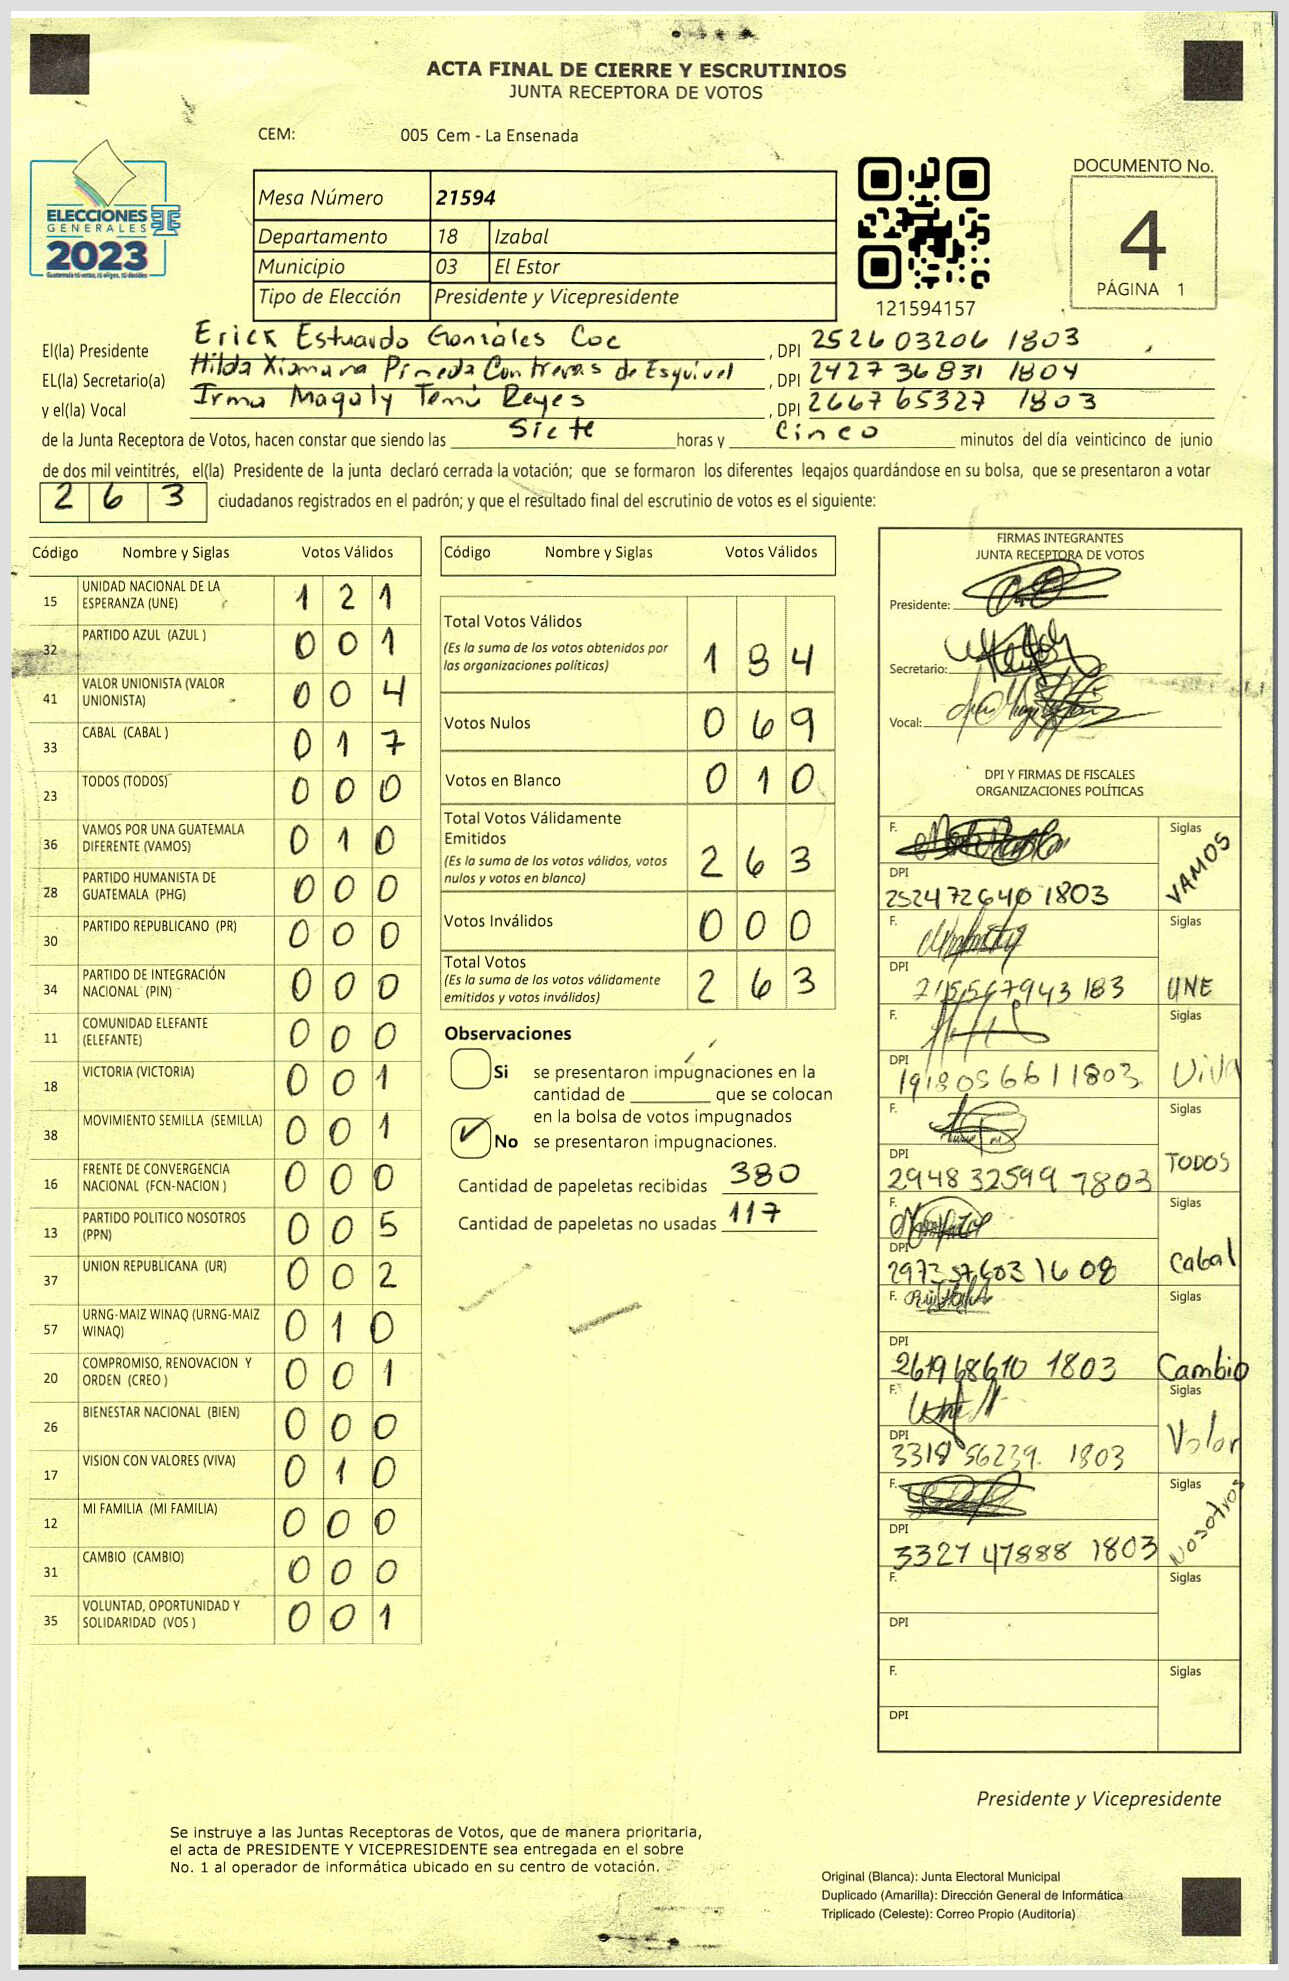 ACTA FINAL DE CIERRE Y ESCRUTINIOS
JUNTA RECEPTORA DE VOTOS
CEM: 005 Cem - La Ensenada
ELECCIONES
GENERALES
2023
Mesa Número 21594
Departamento 18 Izabal
Municipio 03 El Estor
Tipo de Elección Presidente y Vicepresidente
121594157
DOCUMENTO No.
4
PÁGINA 1
El(la) Presidente Erick Estuardo Gonzáles Coc , DPI 2526 03206 1803
EL(la) Secretario(a) Hilda Xiomara Pineda Contreras de Esquivel , DPI 2427 36831 1804
y el(la) Vocal Irma Magaly Temú Reyes , DPI 2667 65327 1803
de la Junta Receptora de Votos, hacen constar que siendo las Siete horas y Cinco minutos del día veinticinco de junio
de dos mil veintitrés, el(la) Presidente de la junta declaró cerrada la votación; que se formaron los diferentes legajos guardándose en su bolsa, que se presentaron a votar
2 6 3 ciudadanos registrados en el padrón; y que el resultado final del escrutinio de votos es el siguiente:
Código Nombre y Siglas Votos Válidos
15 UNIDAD NACIONAL DE LA ESPERANZA (UNE) 1 2 1
32 PARTIDO AZUL (AZUL ) 0 0 1
41 VALOR UNIONISTA (VALOR UNIONISTA) 0 0 4
33 CABAL (CABAL ) 0 1 7
23 TODOS (TODOS) 0 0 0
36 VAMOS POR UNA GUATEMALA DIFERENTE (VAMOS) 0 1 0
28 PARTIDO HUMANISTA DE GUATEMALA (PHG) 0 0 0
30 PARTIDO REPUBLICANO (PR) 0 0 0
34 PARTIDO DE INTEGRACIÓN NACIONAL (PIN) 0 0 0
11 COMUNIDAD ELEFANTE (ELEFANTE) 0 0 0
18 VICTORIA (VICTORIA) 0 0 1
38 MOVIMIENTO SEMILLA (SEMILLA) 0 0 1
16 FRENTE DE CONVERGENCIA NACIONAL (FCN-NACION ) 0 0 0
13 PARTIDO POLITICO NOSOTROS (PPN) 0 0 5
37 UNION REPUBLICANA (UR) 0 0 2
57 URNG-MAIZ WINAQ (URNG-MAIZ WINAQ) 0 1 0
20 COMPROMISO, RENOVACION Y ORDEN (CREO ) 0 0 1
26 BIENESTAR NACIONAL (BIEN) 0 0 0
17 VISION CON VALORES (VIVA) 0 1 0
12 MI FAMILIA (MI FAMILIA) 0 0 0
31 CAMBIO (CAMBIO) 0 0 0
35 VOLUNTAD, OPORTUNIDAD Y SOLIDARIDAD (VOS ) 0 0 1
Código Nombre y Siglas Votos Válidos
Total Votos Válidos
(Es la suma de los votos obtenidos por las organizaciones políticas) 1 8 4
Votos Nulos 0 6 9
Votos en Blanco 0 1 0
Total Votos Válidamente Emitidos
(Es la suma de los votos válidos, votos nulos y votos en blanco) 2 6 3
Votos Inválidos 0 0 0
Total Votos
(Es la suma de los votos válidamente emitidos y votos inválidos) 2 6 3
Observaciones
Si se presentaron impugnaciones en la
cantidad de ________ que se colocan
en la bolsa de votos impugnados
No se presentaron impugnaciones.
Cantidad de papeletas recibidas 380
Cantidad de papeletas no usadas 117
FIRMAS INTEGRANTES
JUNTA RECEPTORA DE VOTOS
Presidente:
Secretario:
Vocal:
DPI Y FIRMAS DE FISCALES
ORGANIZACIONES POLÍTICAS
F. Siglas
DPI
252472640 1803 VAMOS
F. Siglas
DPI
UNE
F. Siglas
DPI
Viva
F. Siglas
DPI
2948 32599 1803 TODOS
F. Siglas
DPI
Cabal
F. Siglas
DPI
261968610 1803 Cambio
F. Siglas
DPI
3318 56239. 1803 Valor
F. Siglas
DPI
3327 47888 1803 Nosotros
F. Siglas
DPI
F. Siglas
DPI
Presidente y Vicepresidente
Se instruye a las Juntas Receptoras de Votos, que de manera prioritaria,
el acta de PRESIDENTE Y VICEPRESIDENTE sea entregada en el sobre
No. 1 al operador de informática ubicado en su centro de votación.
Original (Blanca): Junta Electoral Municipal
Duplicado (Amarilla): Dirección General de Informática
Triplicado (Celeste): Correo Propio (Auditoría)